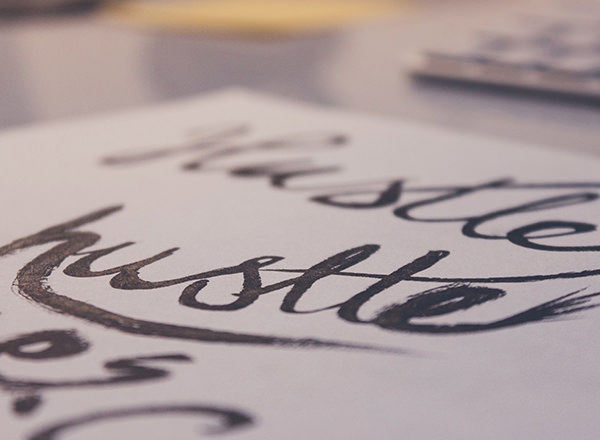 Hustle
hustle